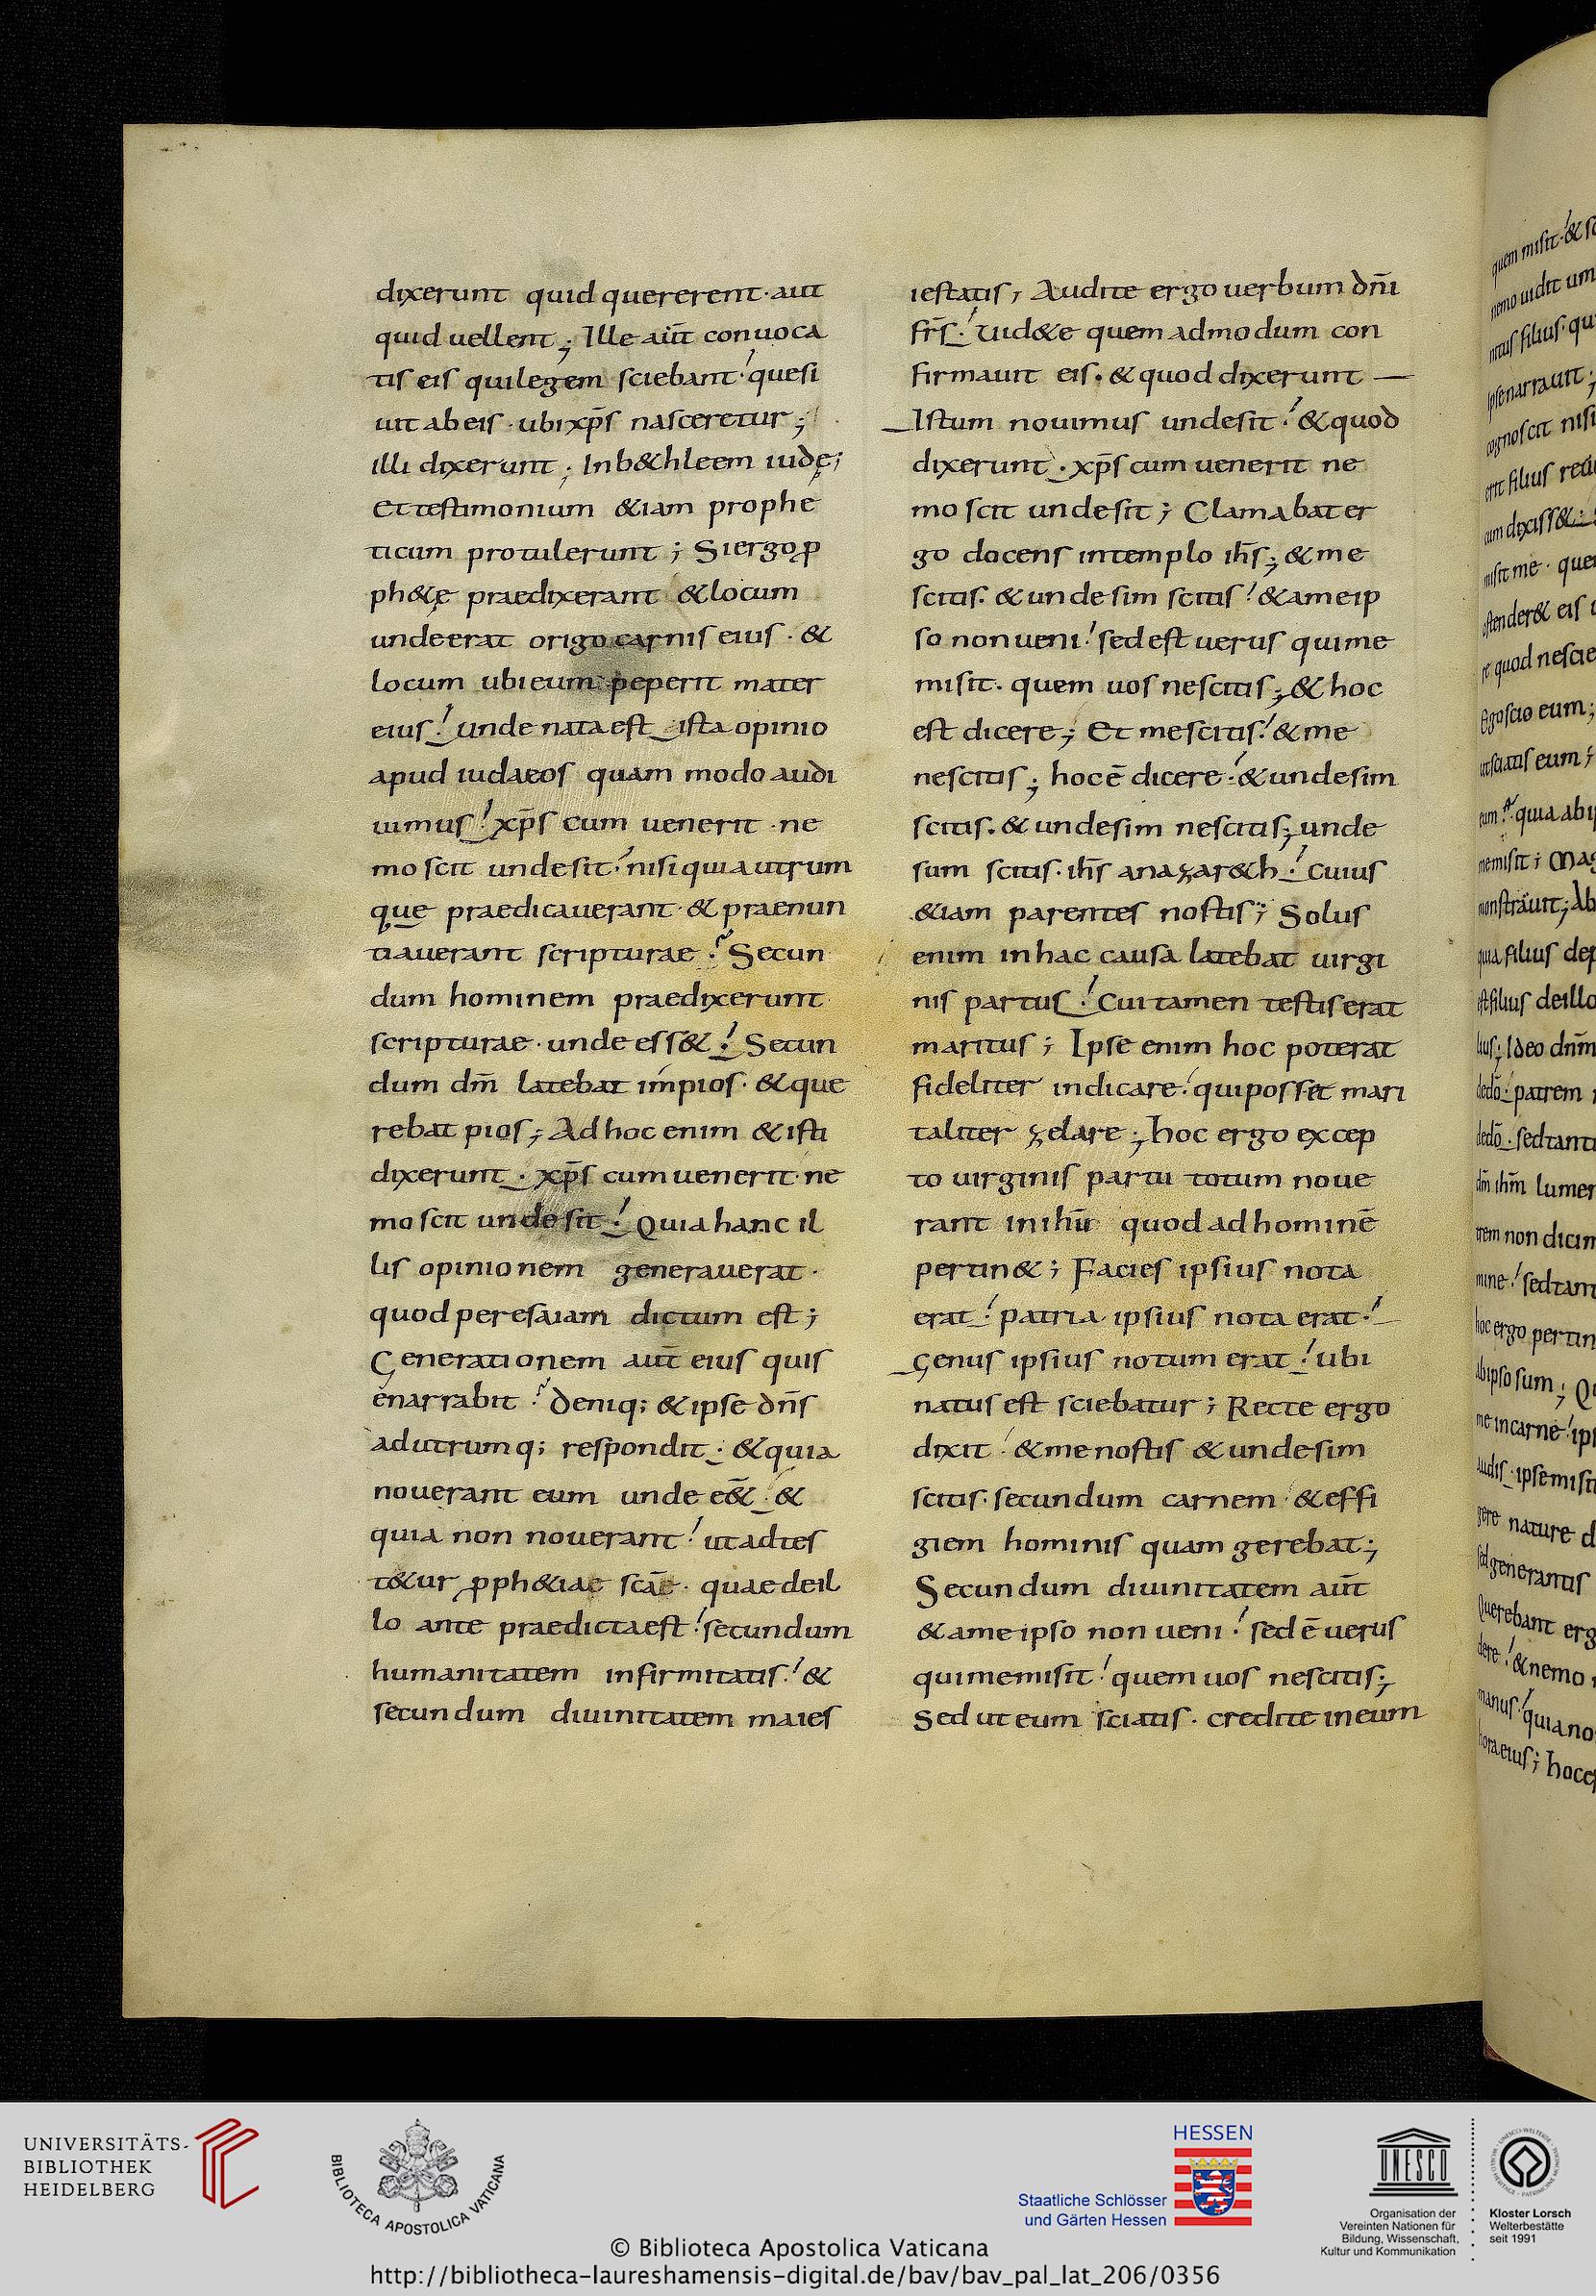 dixerunt quid quererent· aut
quid uellent; Ille aut̄ conuoca
tis eis qui legem sciebant· quesi
uit ab eis· ubi xp̄s nasceretur;
illi dixerunt; In b&hleem iudę;
Et testimonium &iam prophe
ticum protulerunt; Si ergo ꝓ
ph&ę praedixerant & locum
unde erat origo carnis eius· &
locum ubi eum peperit mater
eius! unde nata est ista opinio
apud iudaeos quam modo audi
uimus! xp̄s cum uenerit· ne
mo scit unde sit· nisi quia utrum
que praedicauerant· & praenun
tiauerant scripturae? Secun
dum hominem praedixerunt
scripturae· unde ess&! Secun
dum dm̄ latebat impios· & que
rebat pios; Ad hoc enim & isti
dixerunt· xp̄s cum uenerit· ne
mo scit unde sit! Quia hanc il
lis opinionem generauerat·
quod per esaiam dictum est;
Generationem aut̄ eius quis
enarrabit? Deniq; & ipse dn̄s
ad utrumq; respondit· & quia
nouerant eum unde ē&· &
quia non nouerant! ut ad tes
t&ur ꝓph&iae scāe· quae de il
lo ante praedicta est! secundum
humanitatem infirmitatis! &
secundum diuinitatem maies
iestatis, Audite ergo uerbum dn̄i
fr̄s! Uid&e quem admodum con
firmauit eis· & quod dixerunt —
Istum nouimus unde sit! & quod
dixerunt· xp̄s cum uenerit ne
mo scit unde sit; Clamabat er
go docens in templo ih̄s; & me
scitis· & unde sim scitis! & a me ip
so non ueni! sed est uerus qui me
misit· quem uos nescitis; & hoc
est dicere; Et me scitis! & me
nescitis; hoc ē dicere! & unde sim
scitis· & unde sim nescitis; unde
sum scitis· ih̄s a nazar&h! Cuius
&iam parentes nostis; Solus
enim in hac causa latebat uirgi
nis partus! Cui tamen testis erat
maritus; Ipse enim hoc poterat
fideliter indicare! qui poss& et mari
taliter zelare; hoc ergo excep
to uirginis partu totum noue
rant in ih̄u quod ad hominē
pertin&; Facies ipsius nota
erat! patria ipsius nota erat!
Genus ipsius notum erat! ubi
natus est sciebatur; Recte ergo
dixit! & me nostis & unde sim
scitis· secundum carnem & effi
giem hominis quam gerebat;
Secundum diuinitatem aut̄
& a me ipso non ueni! sed ē uerus
qui me misit! quem uos nescitis;
Sed ut eum sciatis· credite in eum
UNIVERSITÄTS-
BIBLIOTHEK
HEIDELBERG
BIBLIOTECA APOSTOLICA VATICANA
HESSEN
Staatliche Schlösser
und Gärten Hessen
UNESCO
Organisation der
Vereinten Nationen für
Bildung, Wissenschaft,
Kultur und Kommunikation
Kloster Lorsch
Welterbestätte
seit 1991
© Biblioteca Apostolica Vaticana
http://bibliotheca-laureshamensis-digital.de/bav/bav_pal_lat_206/0356